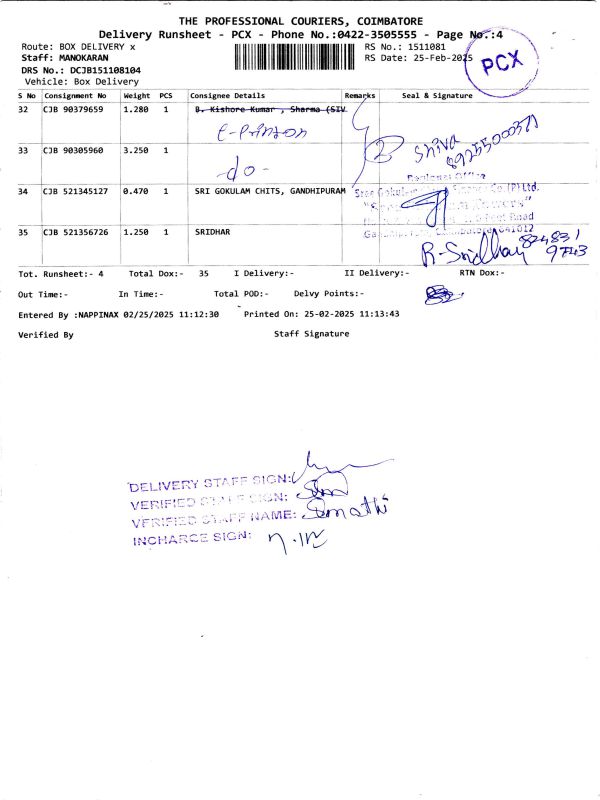 THE PROFESSIONAL COURIERS, COIMBATORE
Delivery Runsheet - PCX - Phone No.:0422-3505555 - Page No.:4
Route: BOX DELIVERY x
RS No.: 1511081
Staff: MANOKARAN
RS Date: 25-Feb-2025
PCX
DRS No.: DCJB151108104
Vehicle: Box Delivery
S No Consignment No Weight PCS Consignee Details Remarks Seal & Signature
32 CJB 90379659 1.280 1 B. Kishore Kumar , Sharma (SIV
E-Printon
Shiva
33 CJB 90305960 3.250 1
-do-
2
Regional Office
34 CJB 521345127 0.470 1 SRI GOKULAM CHITS, GANDHIPURAM
Co.(P)Ltd.
Road
641012
35 CJB 521356726 1.250 1 SRIDHAR
R-Sridhar
Tot. Runsheet:- 4 Total Dox:- 35 I Delivery:- II Delivery:- RTN Dox:-
Out Time:- In Time:- Total POD:- Delvy Points:-
Entered By :NAPPINAX 02/25/2025 11:12:30 Printed On: 25-02-2025 11:13:43
Verified By Staff Signature
DELIVERY STAFF SIGN:
VERIFIED STAFF SIGN:
VERIFIED STAFF NAME:
INCHARGE SIGN: